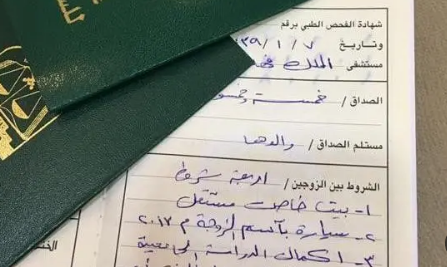 شهادة الفحص الطبي برقم
وتـاريـخ ٧ / ١ / ٣٩
مستشفى الملك
الصداق / خمسة وخمسو
مستلم الصداق / والدها
الشروط بين الزوجين / اربعة شروط
١- بيت خاص مستقل
٢- سيارة بأسم الزوجة م ٢٠١٣
٣- اكمال الدراسة الجامعية